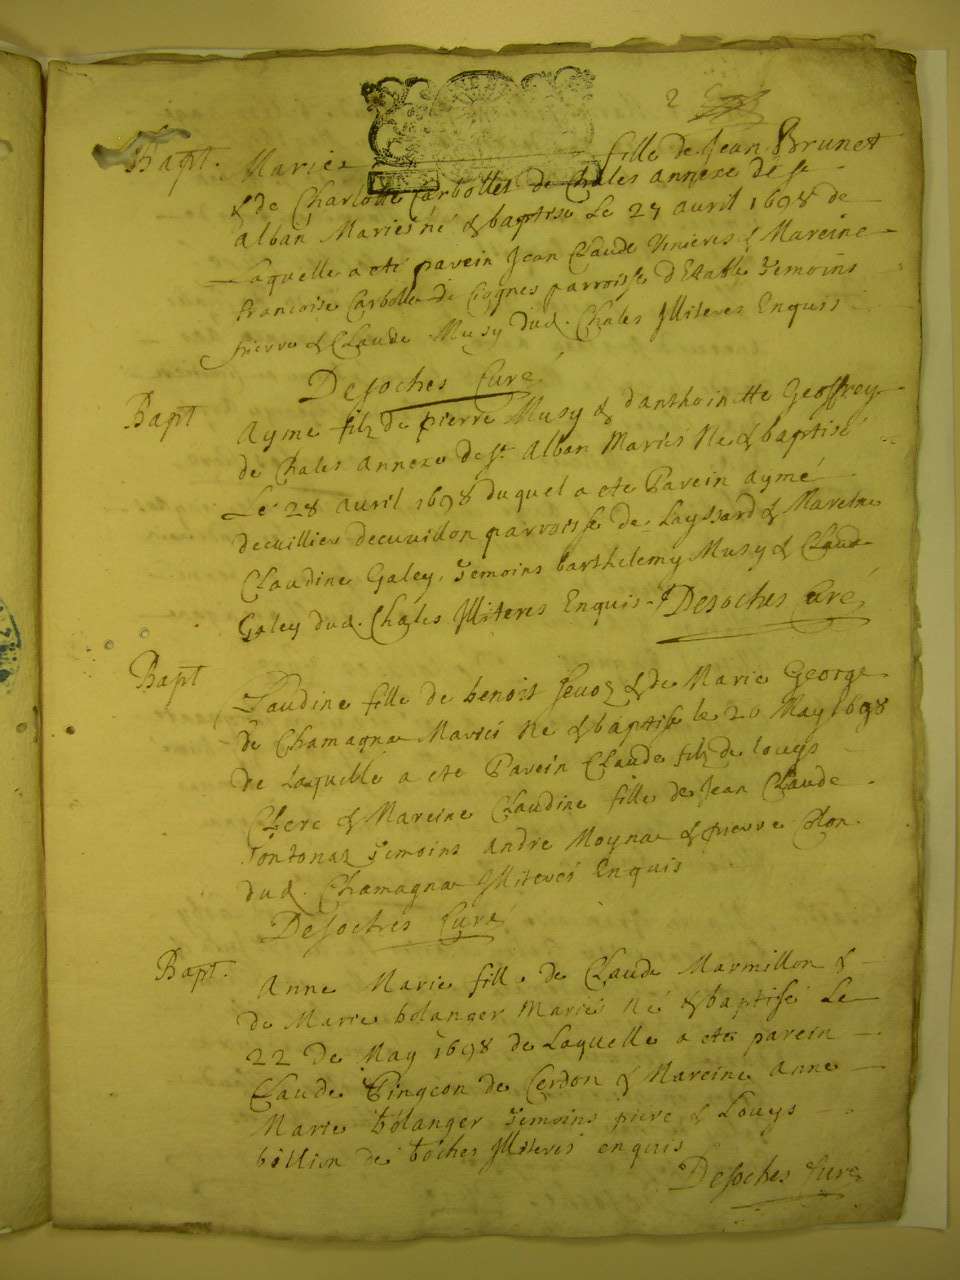 2
Bapt. Marie fille de Jean Brunet
& de Charlotte Carbollet de Chales annexe de St
Alban Mariés né & baptisé Le 27 avril 1698 de
Laquelle a eté parein Jean Claude & Mareine
francoise Carbollet de parroisse d'Estable Temoins
pierre & Claude Musy dud. Chales Illiteres Enquis
Desoches Curé
Bapt Ayme filz de pierre Musy & danthoinette Geoffrey
de Chales annexe de St Alban Mariés Ne & baptisé
Le 28 avril 1698 duquel a ete Parein aymé
decuillier parroisse de Layssard & Mareine
Claudine Galey, Temoins barthelemy Musy & Claude
Galey dud. Chales Illiteres Enquis Desoches Curé
Bapt Claudine fille de benoist & de Marie George
de Chamagna Mariés Ne & baptisé le 20 May 1698
de Laquelle a ete Parein Claude filz de louys
Clerc & Mareine Claudine fille de Jean Claude
Temoins andre Moyna & pierre
dud. Chamagna Illiterés Enquis
Desoches Curé
Bapt. Anne Marie fille de Claude Marmillon &
de Marie bolanger Mariés Né & baptisé Le
22 De May 1698 de Laquelle a ete parein
Claude Pingeon de Cerdon & Mareine Anne
Marie bolanger Temoins piere & Louys
bollion de boches Illiterés enquis
Desoches Curé